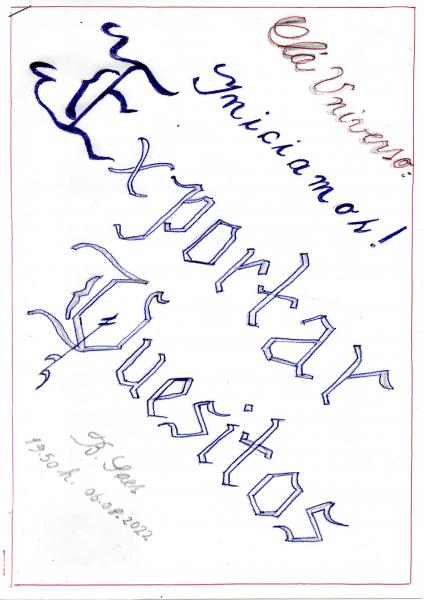 Olá Vniverso:
Yniciamos!
Exportar
Quesitos
19.50 h. 06.08.2022